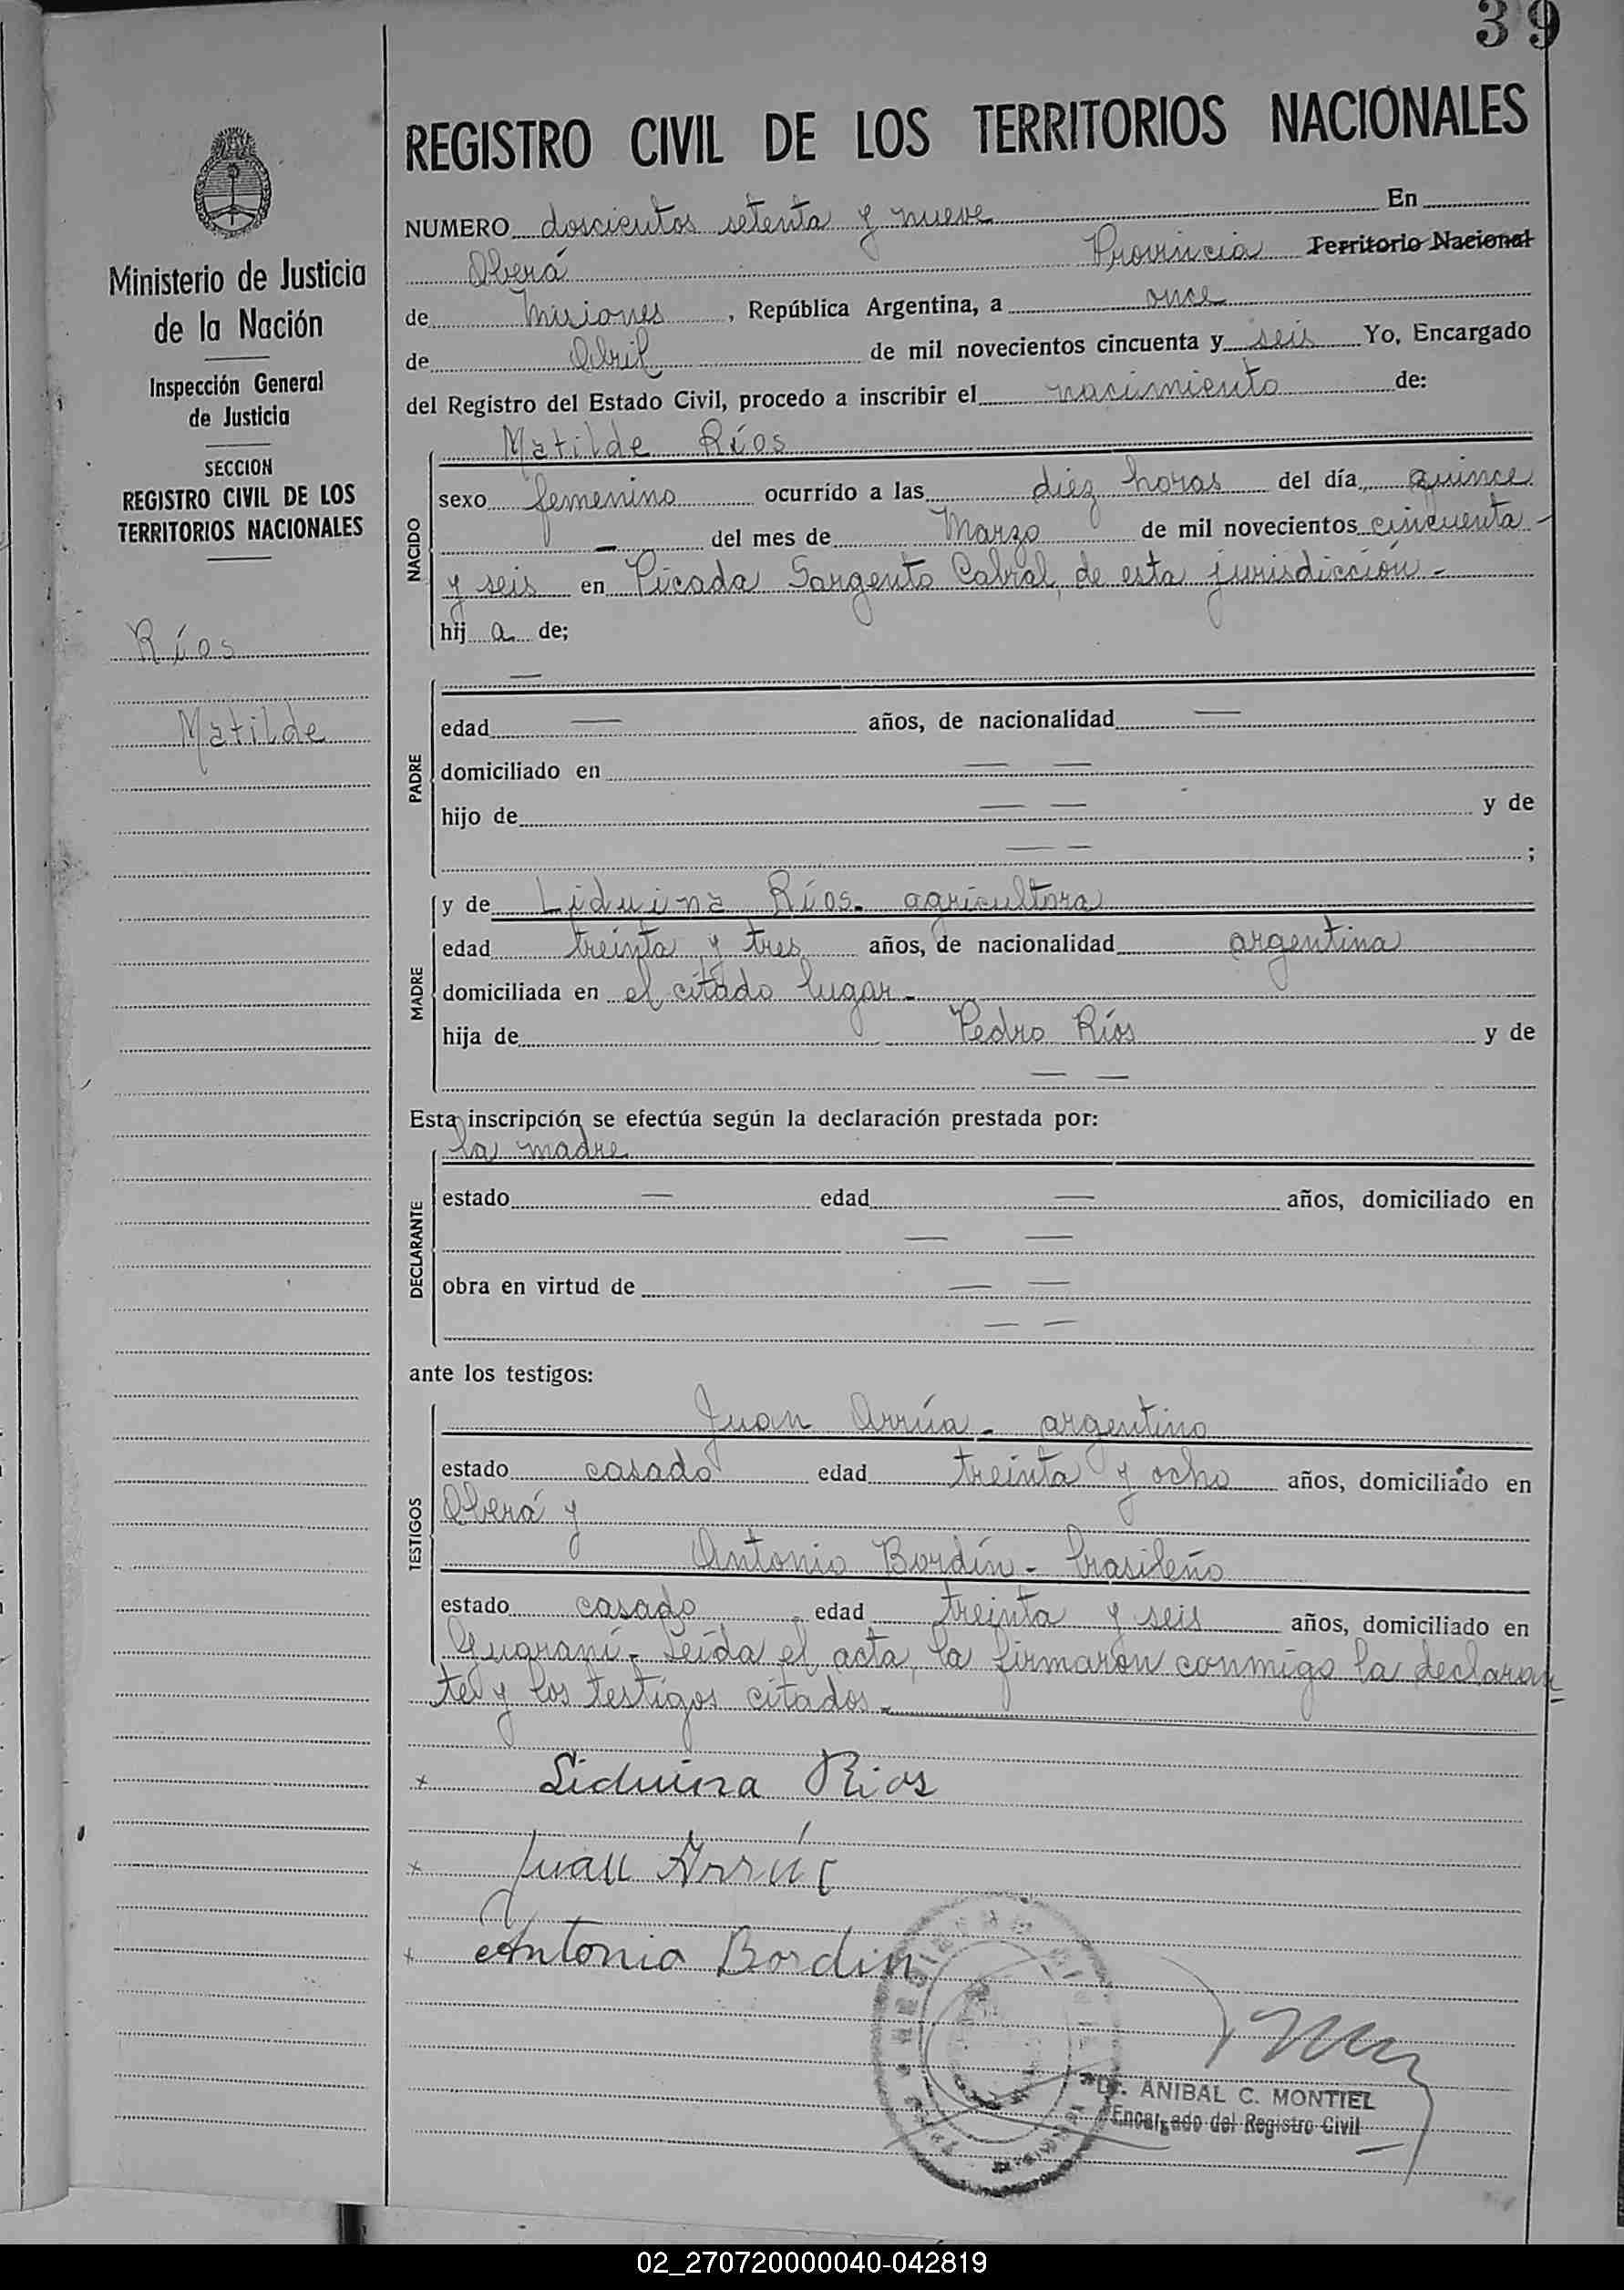 39
REGISTRO CIVIL DE LOS TERRITORIOS NACIONALES
Ministerio de Justicia
de la Nación
Inspección General
de Justicia
SECCION
REGISTRO CIVIL DE LOS
TERRITORIOS NACIONALES
Ríos
Matilde
NUMERO doscientos setenta y nueve En
Oberá Provincia Territorio Nacional
de Misiones, República Argentina, a once
de Abril de mil novecientos cincuenta y seis Yo, Encargado
del Registro del Estado Civil, procedo a inscribir el nacimiento de:
NACIDO
Matilde Ríos
sexo femenino ocurrido a las diez horas del día quince
— del mes de Marzo de mil novecientos cincuenta -
y seis en Picada Sargento Cabral, de esta jurisdicción -
hij a de;
PADRE
—
edad — años, de nacionalidad —
domiciliado en — —
hijo de — — y de
— — ;
MADRE
y de Liduina Ríos - agricultora
edad treinta y tres años, de nacionalidad argentina
domiciliada en el citado lugar -
hija de Pedro Ríos y de
— —
Esta inscripción se efectúa según la declaración prestada por:
DECLARANTE
la madre
estado — edad — años, domiciliado en
— —
obra en virtud de — —
— —
ante los testigos:
TESTIGOS
Juan Arrúa - argentino
estado casado edad treinta y ocho años, domiciliado en
Oberá y
Antonio Bordín - brasileño
estado casado edad treinta y seis años, domiciliado en
Guaraní - Leída el acta, la firmaron conmigo la declaran=
te y los testigos citados -
x Liduina Rios
x Juan Arrúa
x Antonio Bordin
Dr. ANIBAL C. MONTIEL
Encargado del Registro Civil
02_270720000040-042819